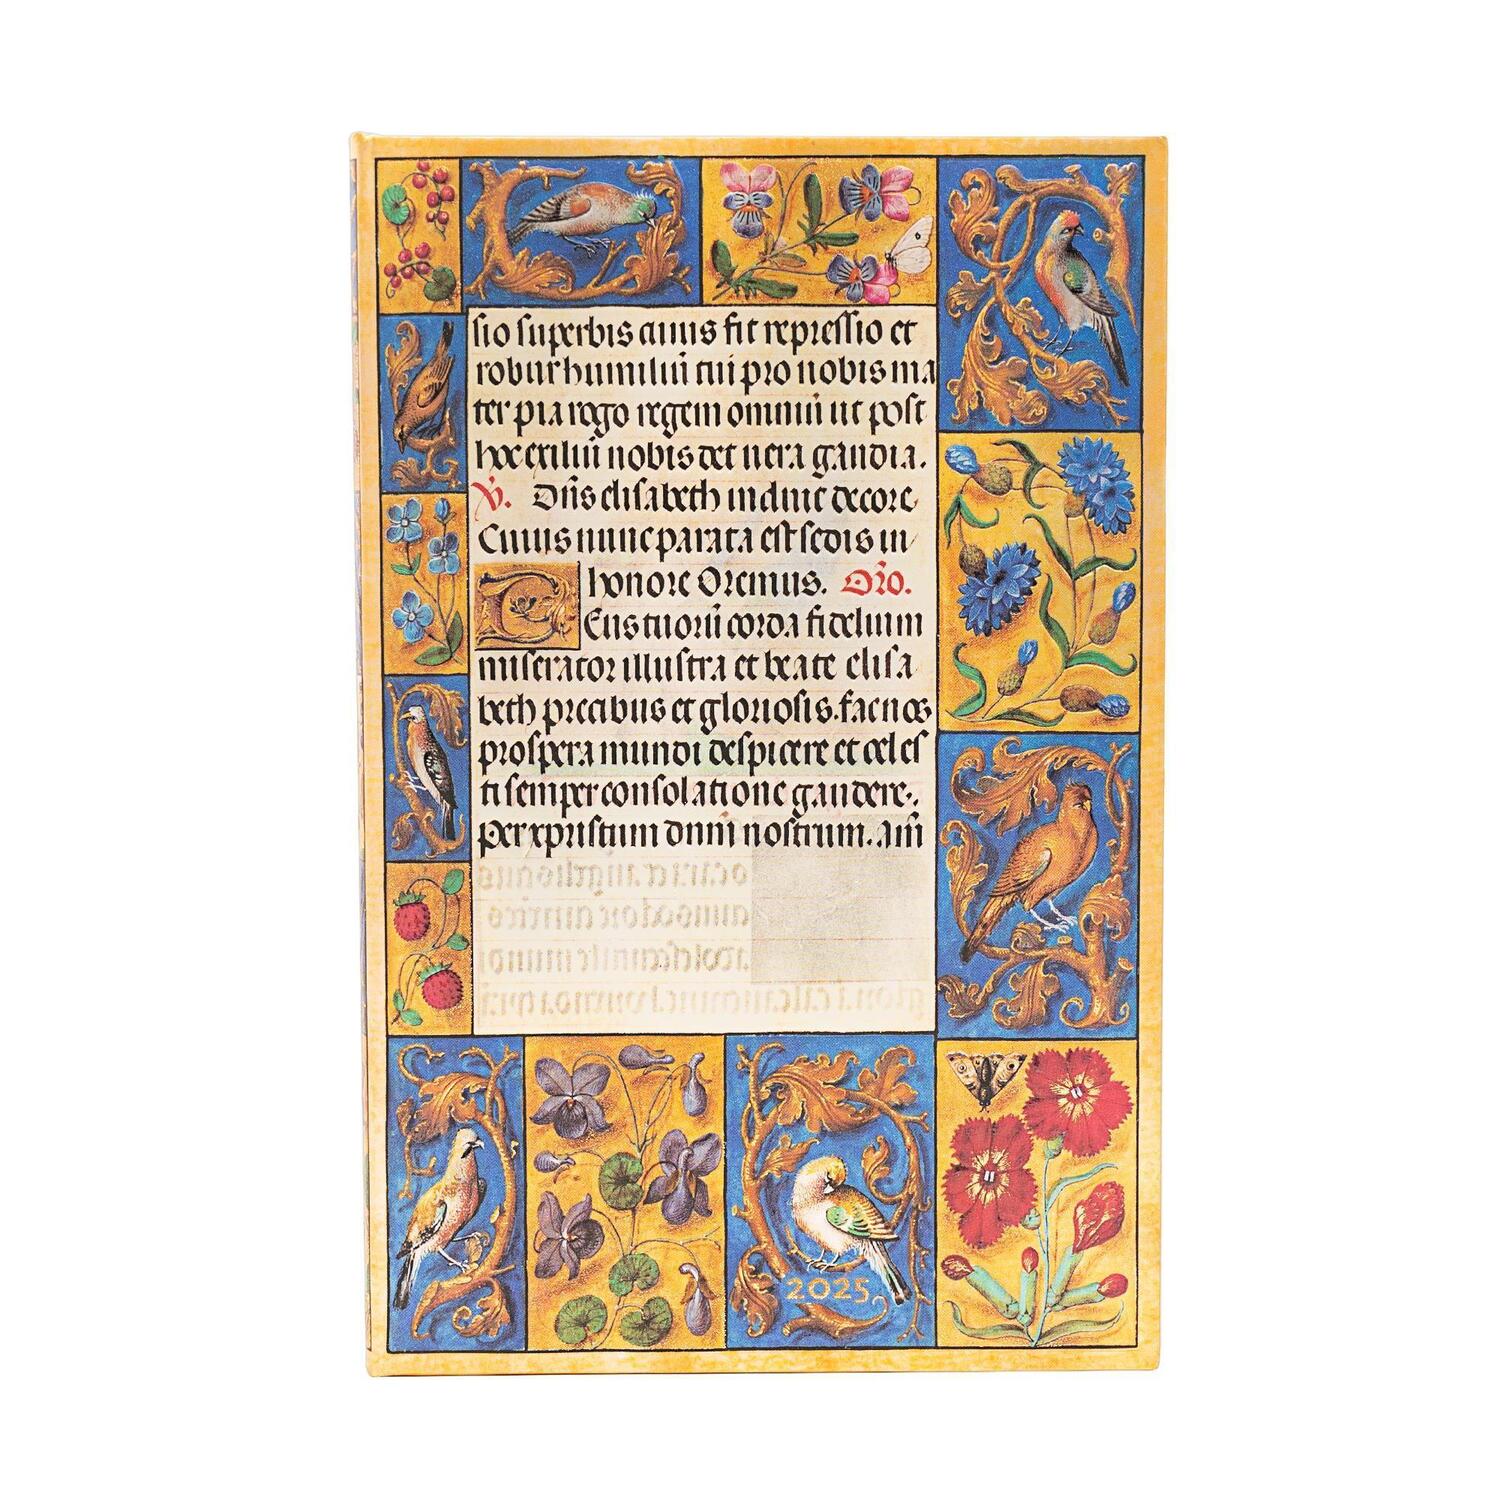 sio superbis cuius fit repressio et
robur humiliū tui pro nobis ma
ter pia rogo regem omniū ut post
hoc exiliū nobis det vera gaudia.
V̇. Dn̄s elisabeth induit decore
Cuius nunc parata est sedis in
honore Oremus. Or̄o.
Deus tuorū corda fidelium
miserator illustra et beate elisa
beth precibus et gloriosis. fac nos
prospera mundi despicere et celes
ti semper consolatione gaudere.
Per xpristum dnm̄ nostrum. Am̄
2025